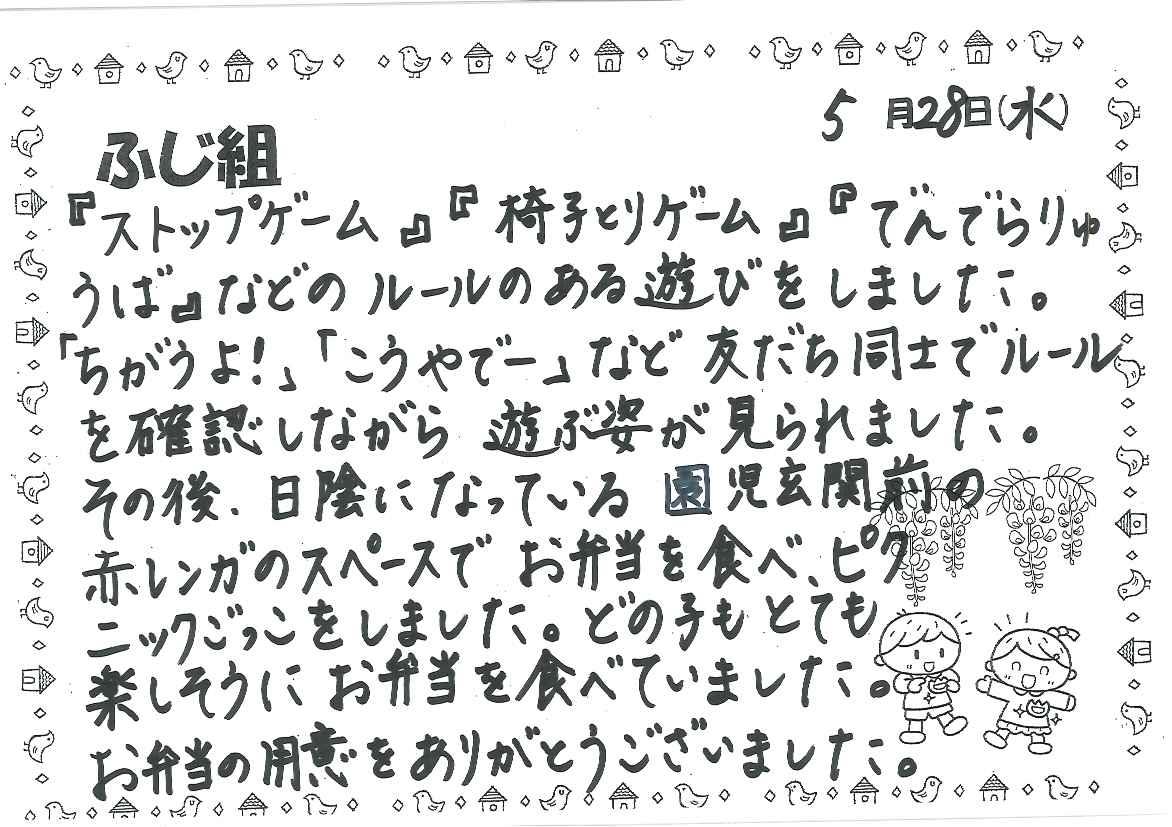 5月28日(水)
ふじ組
『ストップゲーム』『椅子とりゲーム』『でんでらりゅ
うば』などのルールのある遊びをしました。
「ちがうよ!」「こうやでー」など友だち同士でルール
を確認しながら遊ぶ姿が見られました。
その後、日陰になっている園児玄関前の
赤レンガのスペースでお弁当を食べ、ピク
ニックごっこをしました。どの子もとても
楽しそうにお弁当を食べていました。
お弁当の用意をありがとうございました。